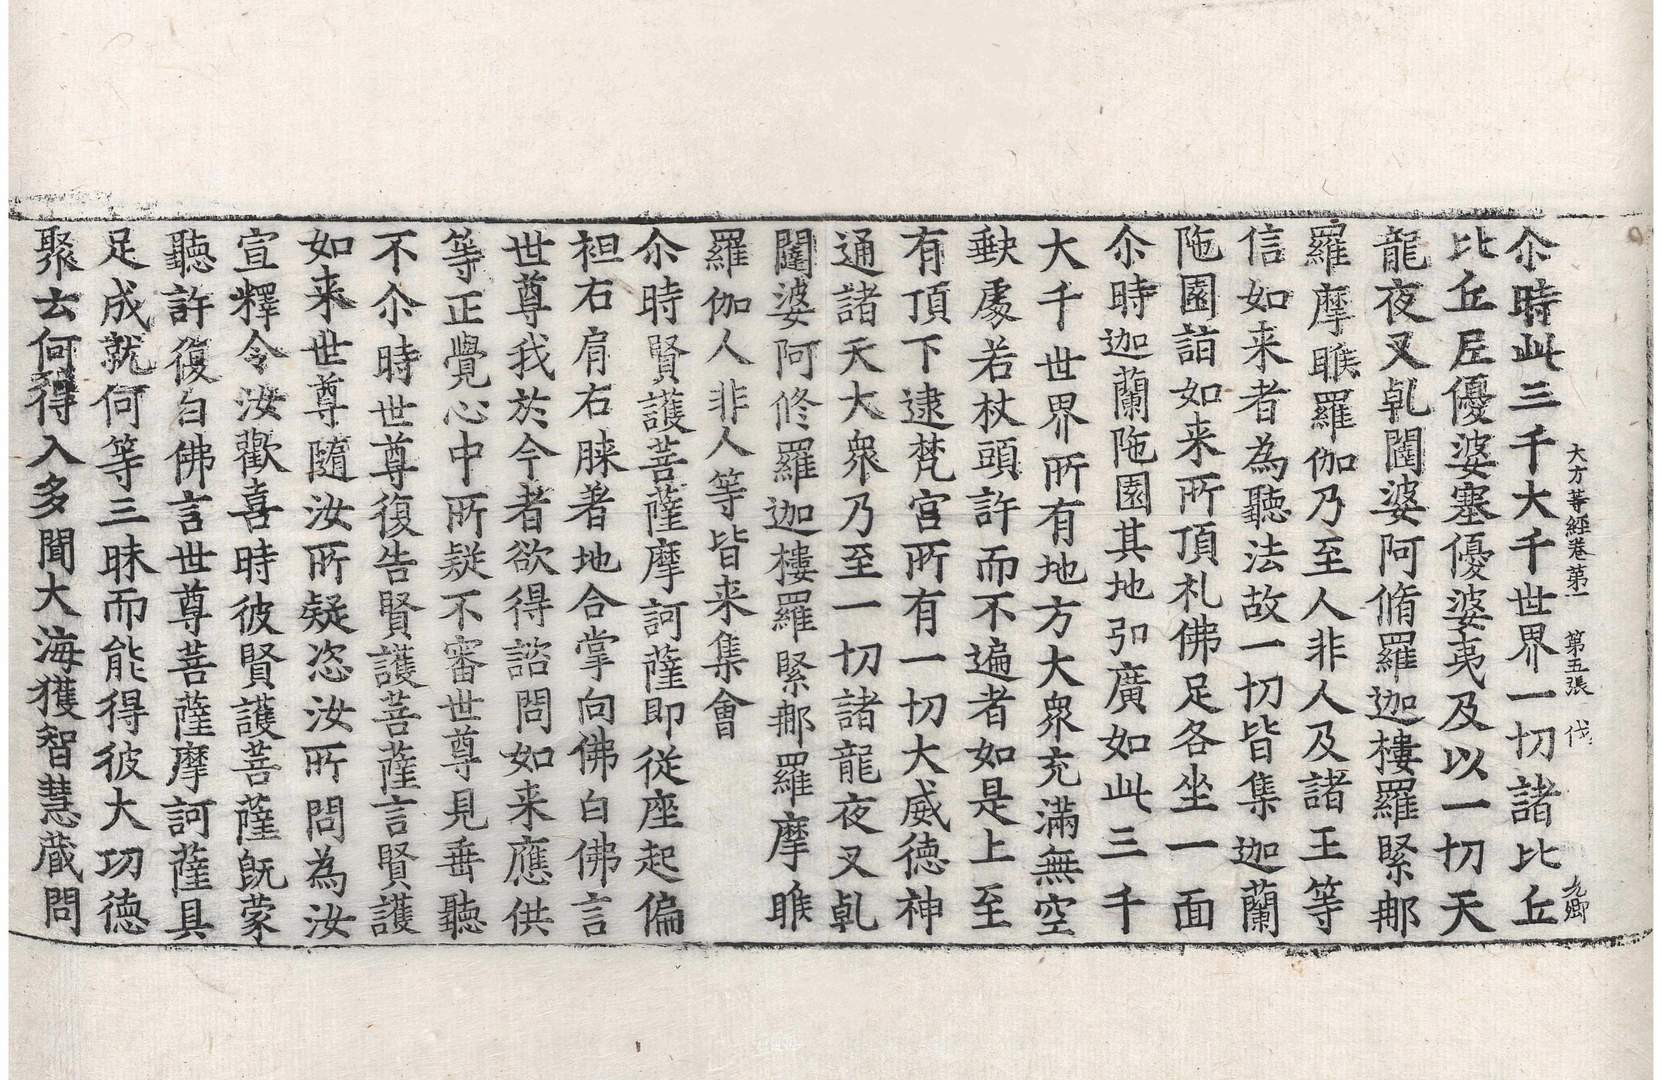 大方等経卷第一 第五張 伐 九卿
尒時此三千大千世界一切諸比丘
比丘尼優婆塞優婆夷及以一切天
龍夜叉乹闥婆阿脩羅迦樓羅緊那
羅摩睺羅伽乃至人非人及諸王等
信如来者為聽法故一切皆集迦蘭
陁園詣如来所頂礼佛足各坐一面
尒時迦蘭陁園其地弘廣如此三千
大千世界所有地方大衆充滿無空
𡙇處若杖頭許而不遍者如是上至
有頂下逮梵宮所有一切大威德神
通諸天大衆乃至一切諸龍夜叉乹
闥婆阿修羅迦樓羅緊那羅摩睺
羅伽人非人等皆来集會
尒時賢護菩薩摩訶薩即従座起偏
袒右肩右膝著地合掌向佛白佛言
世尊我於今者欲得諮問如来應供
等正覺心中所疑不審世尊見垂聽
不尒時世尊復告賢護菩薩言賢護
如来世尊隨汝所疑恣汝所問為汝
宣釋令汝歡喜時彼賢護菩薩既蒙
聽許復白佛言世尊菩薩摩訶薩具
足成就何等三昧而能得彼大功徳
聚云何得入多聞大海獲智慧蔵問